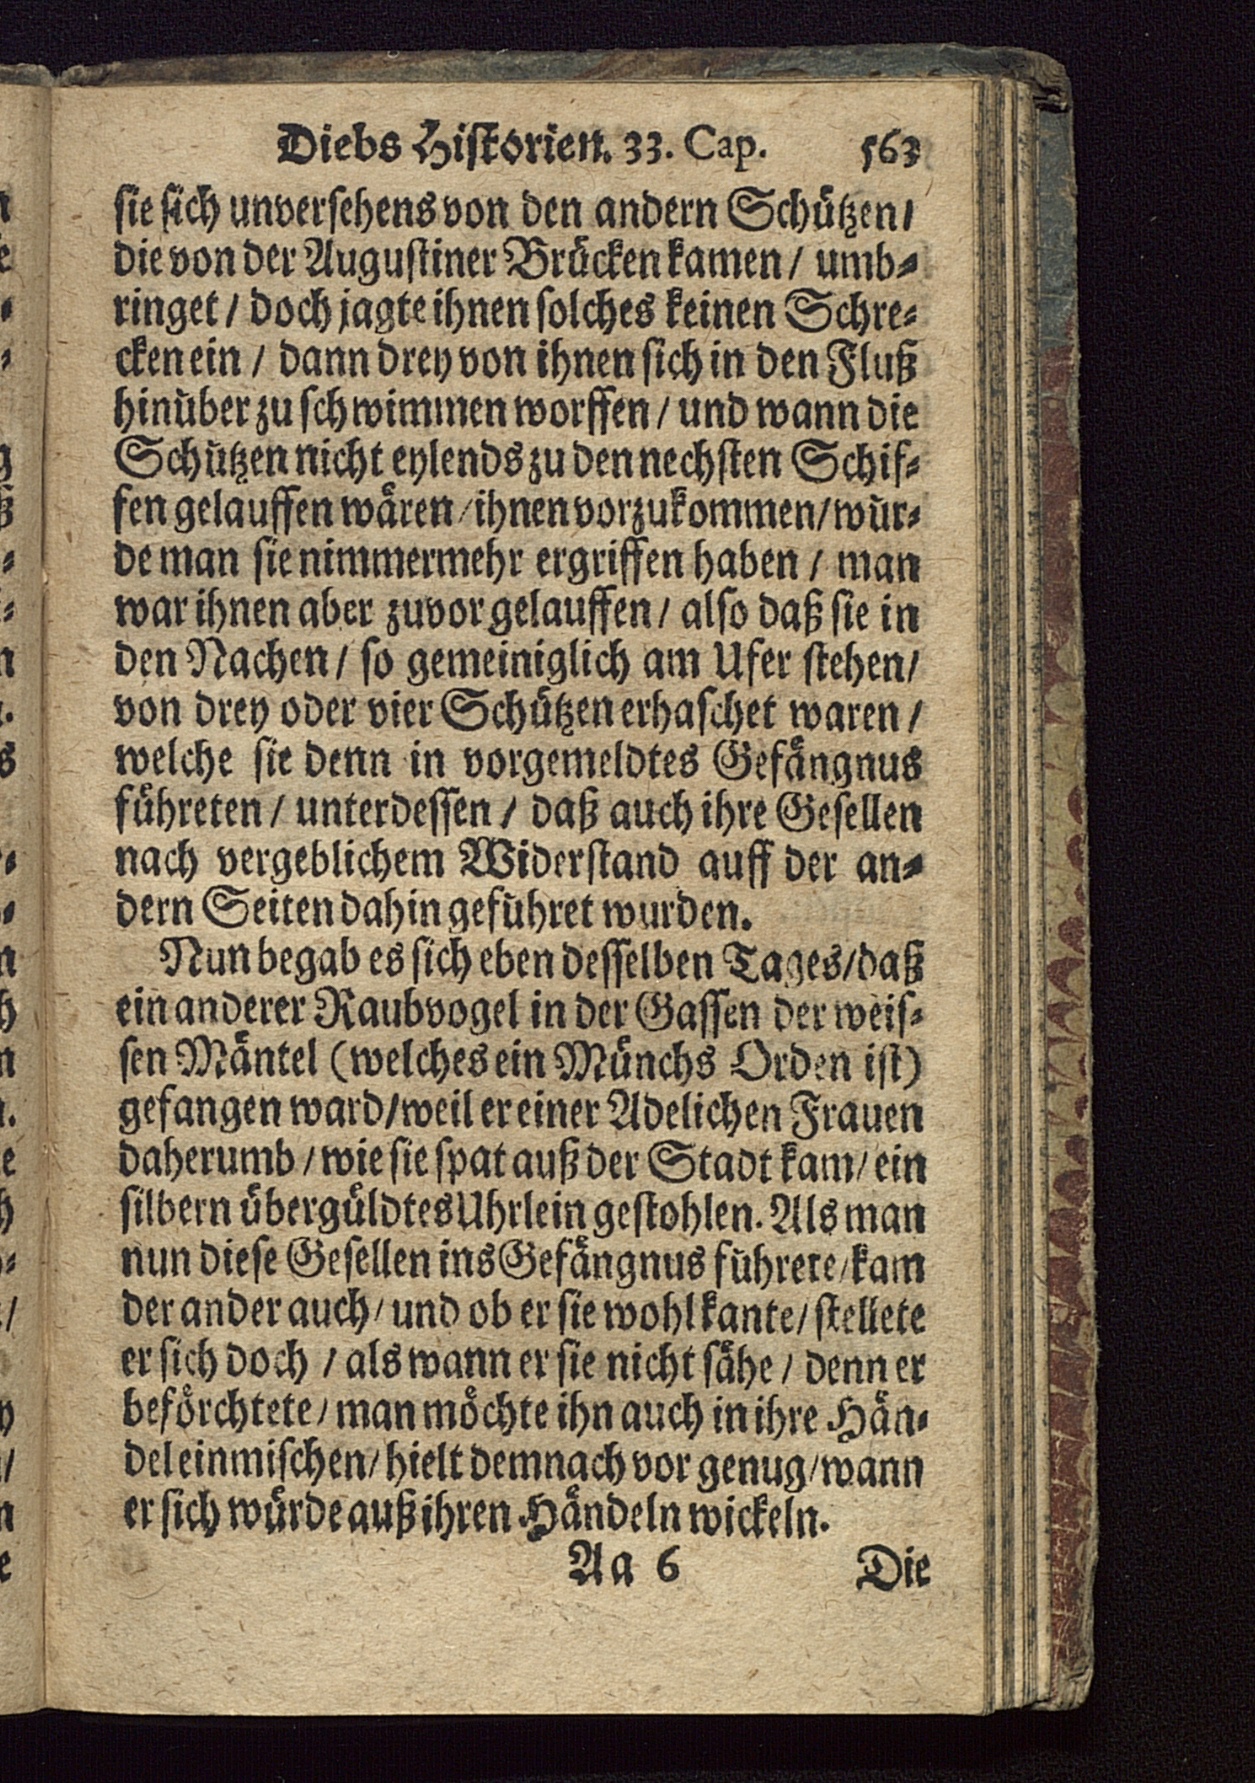 Diebs Historien. 33. Cap. 563
sie sich unversehens von den andern Schützen/
die von der Augustiner Brücken kamen/ umb-
ringet/ doch jagte ihnen solches keinen Schre-
cken ein/ dann drey von ihnen sich in den Fluß
hinüber zu schwimmen worffen/ und wann die
Schützen nicht eylends zu den nechsten Schif-
fen gelauffen wären/ ihnen vorzukommen/ wür-
de man sie nimmermehr ergriffen haben/ man
war ihnen aber zuvor gelauffen/ also daß sie in
den Nachen/ so gemeiniglich am Ufer stehen/
von drey oder vier Schützen erhaschet waren/
welche sie denn in vorgemeldtes Gefängnus
führeten/ unterdessen/ daß auch ihre Gesellen
nach vergeblichem Widerstand auff der an-
dern Seiten dahin geführet wurden.
Nun begab es sich eben desselben Tages/ daß
ein anderer Raubvogel in der Gassen der weis-
sen Mäntel (welches ein Münchs Orden ist)
gefangen ward/ weil er einer Adelichen Frauen
daherumb/ wie sie spat auß der Stadt kam/ ein
silbern übergüldtes Uhrlein gestohlen. Als man
nun diese Gesellen ins Gefängnus führete/ kam
der ander auch/ und ob er sie wohl kante/ stellete
er sich doch/ als wann er sie nicht sähe/ denn er
beförchtete/ man möchte ihn auch in ihre Hän-
del einmischen/ hielt demnach vor genug/ wann
er sich würde auß ihren Händeln wickeln.
Aa 6 Die